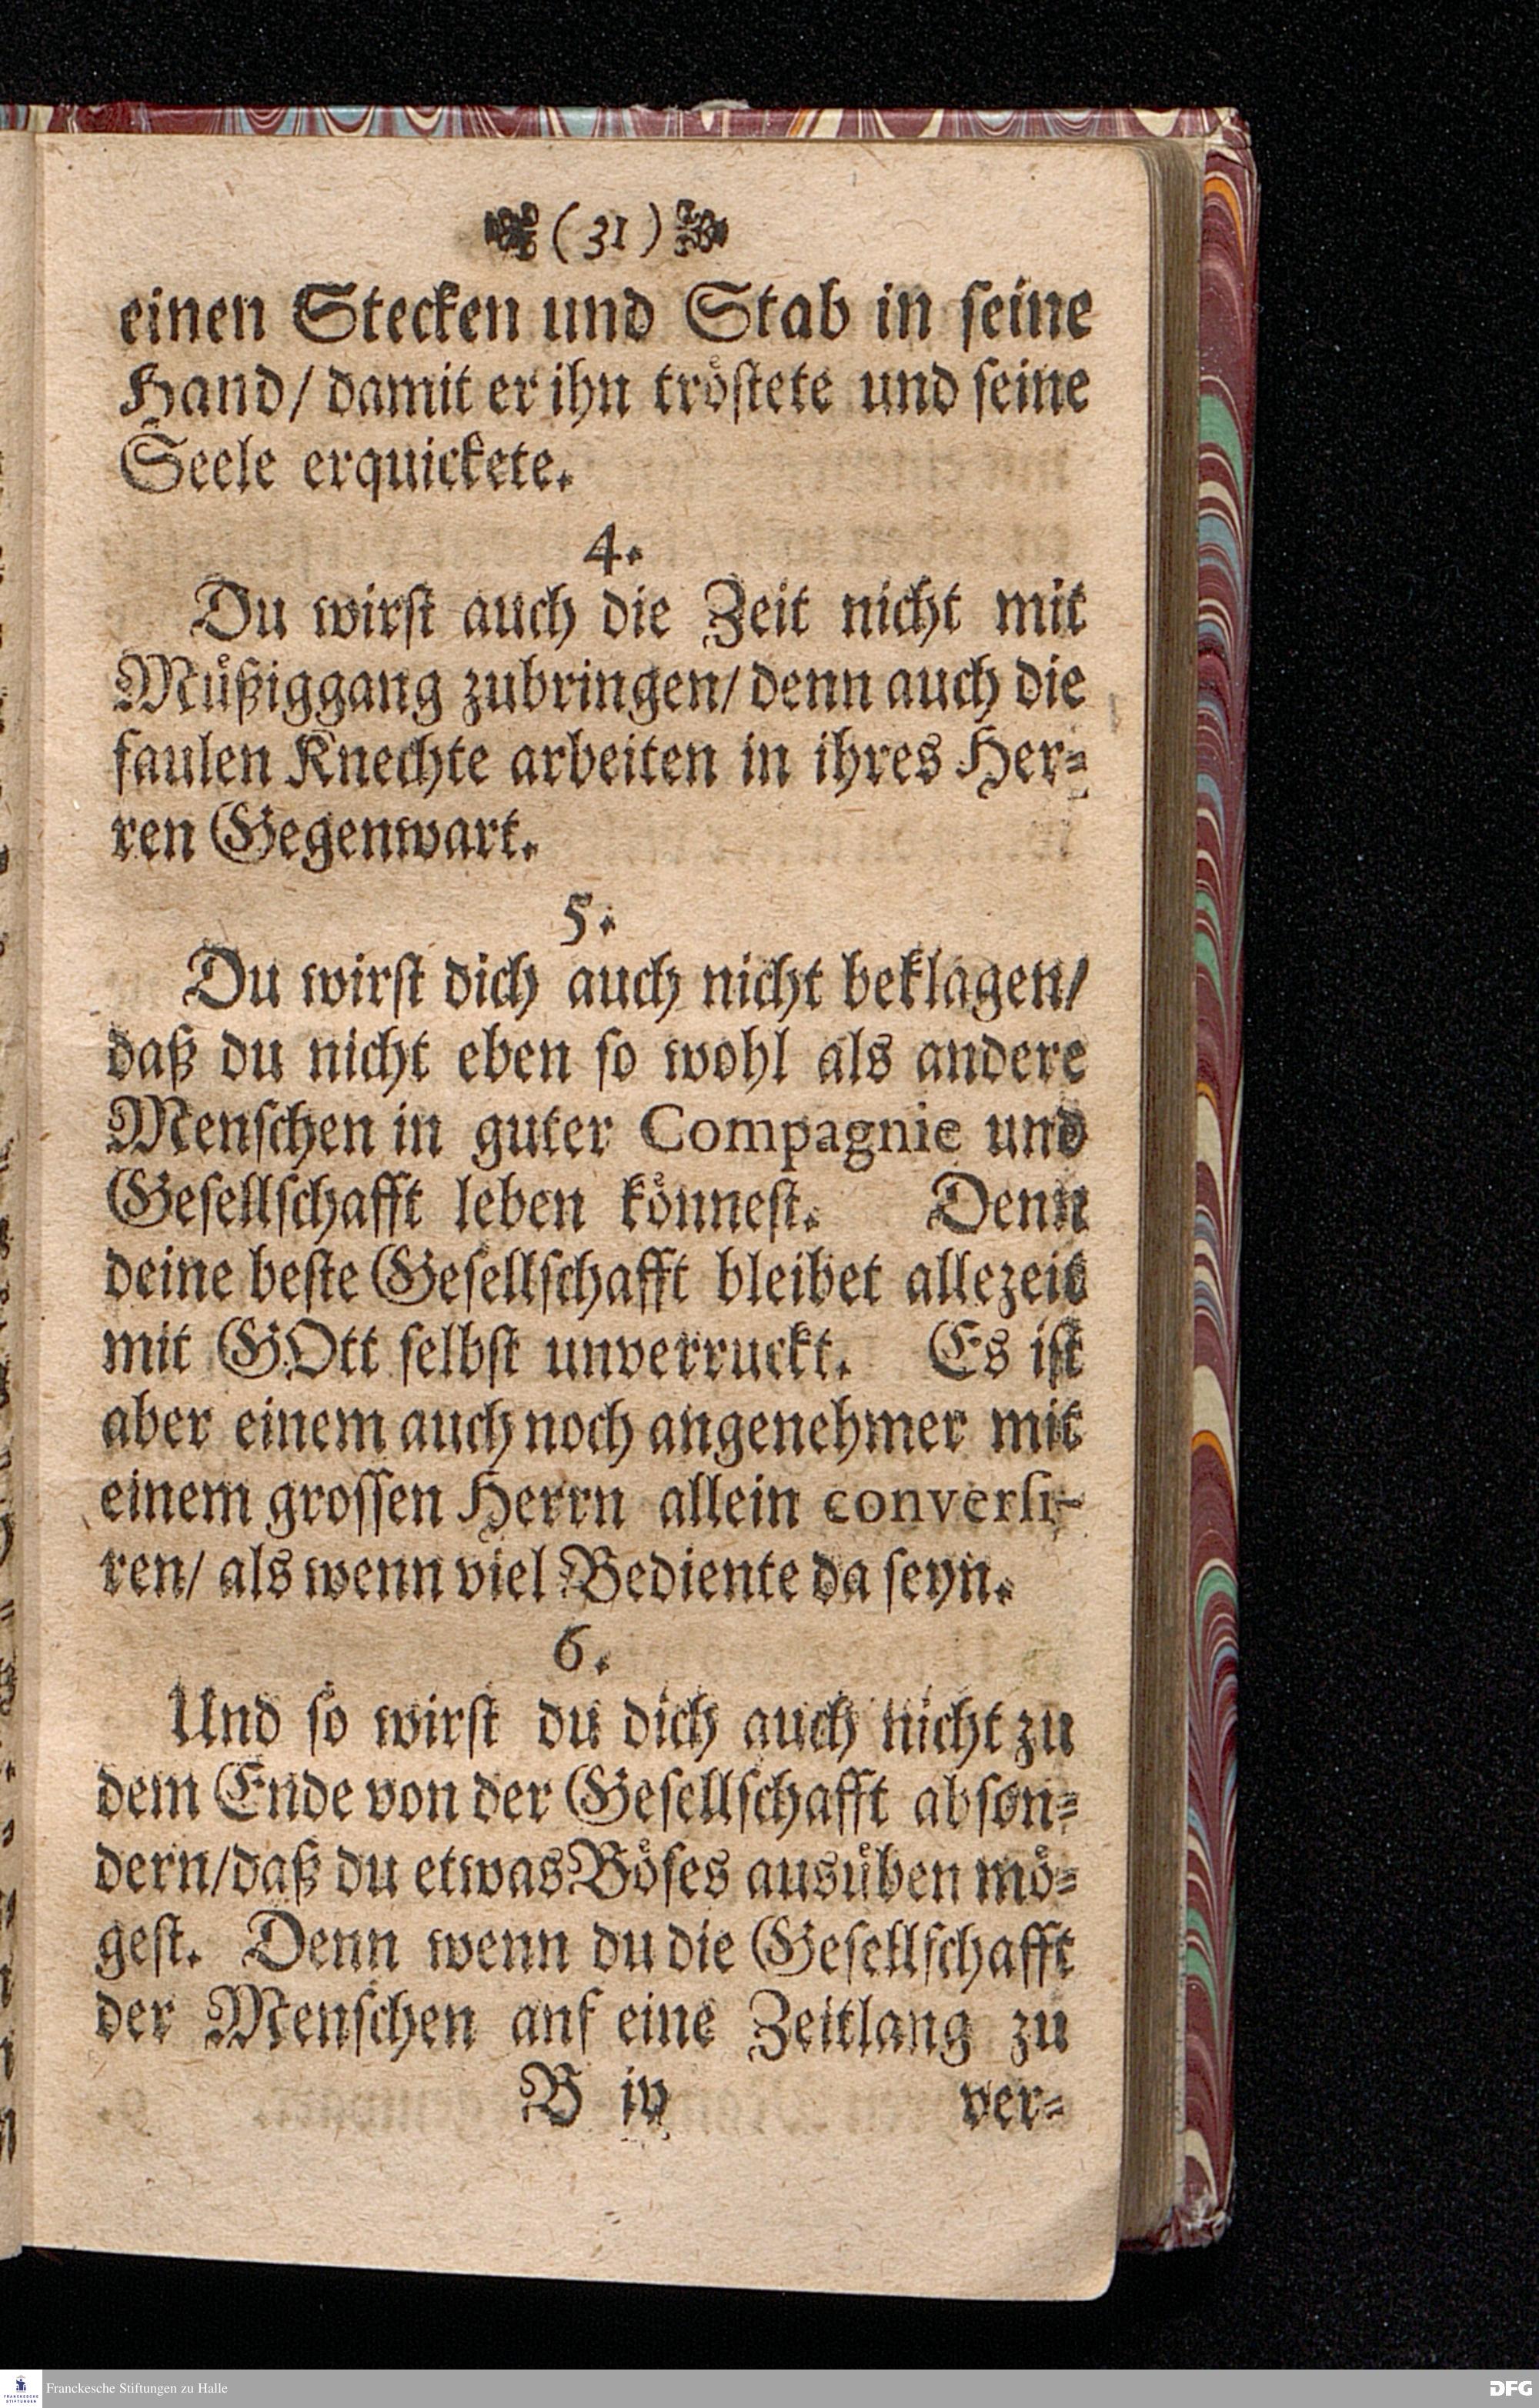 ( 31 )
einen Stecken und Stab in seine
Hand/ damit er ihn tröstete und seine
Seele erquickete.
4.
Du wirst auch die Zeit nicht mit
Müßiggang zubringen/ denn auch die
faulen Knechte arbeiten in ihres Her-
ren Gegenwart.
5.
Du wirst dich auch nicht beklagen/
daß du nicht eben so wohl als andere
Menschen in guter Compagnie und
Gesellschafft leben könnest. Denn
deine beste Gesellschafft bleibet allezeit
mit GOtt selbst unverruckt. Es ist
aber einem auch noch angenehmer mit
einem grossen Herrn allein conversi-
ren/ als wenn viel Bediente da seyn.
6.
Und so wirst du dich auch nicht zu
dem Ende von der Gesellschafft abson-
dern/daß du etwas Böses ausüben mö-
gest. Denn wenn du die Gesellschafft
der Menschen anf eine Zeitlang zu
B iv ver-
Franckesche Stiftungen zu Halle
DFG